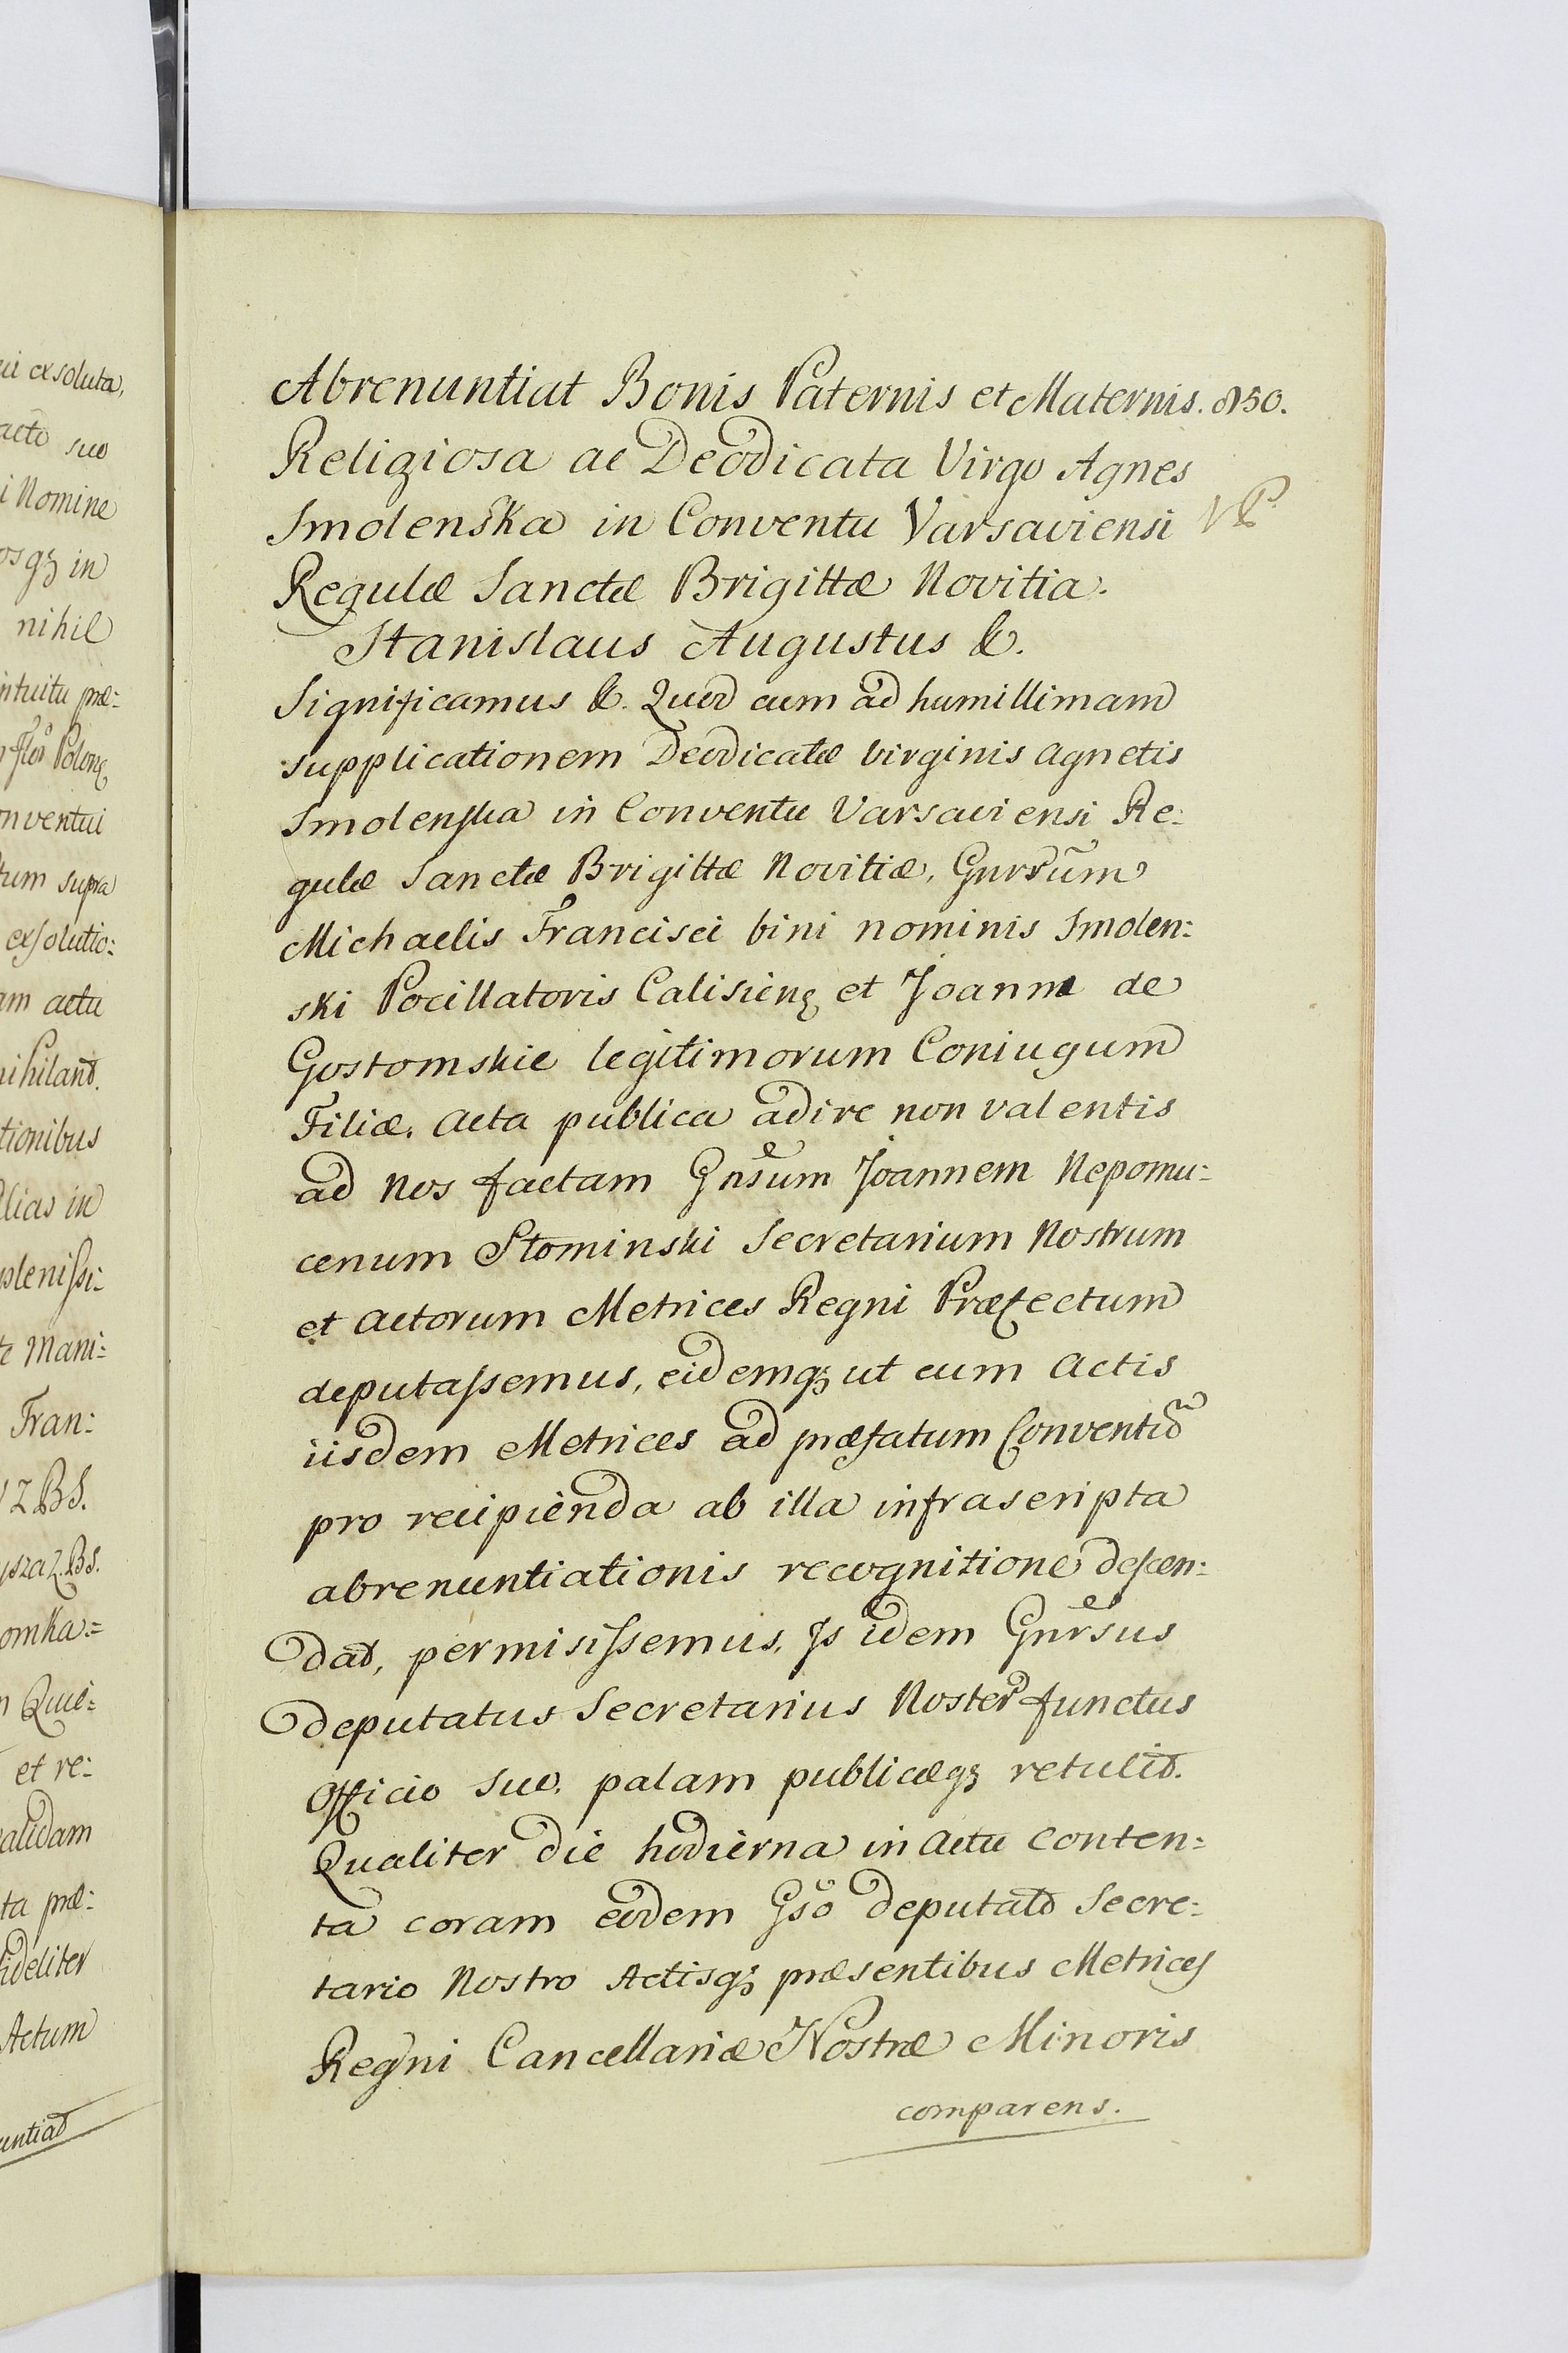 ui exsoluta,
acto suo
i Nomine
osqꝫ in
nihil
intuitu præ:
Polonę
onventui
tum supra
exsolutio:
am actu
nihiland.
tionibus
alias in
plenissi:
te Mani:
Fran:
Z BS.
ysza Z. BS.
omka=
n Quæ:
et re:
validam
ta præ:
fideliter
Actum
untiat
Abrenuntiat Bonis Paternis et Maternis. 850.
Religiosa ac Deodicata Virgo Agnes
Smolenska in Conventu Varsaviensi
Regulæ Sanctæ Brigittæ Novitia.
Stanislaus Augustus &.
Significamus &. Quod cum ad humillimam
supplicationem Deodicatæ Virginis Agnetis
Smolenska in Conventu Varsaviensi Re:
gulæ Sanctæ Brigittæ Novitiæ, Gnrsũm
Michaelis Francisci bini nominis Smolen:
ski Pocillatoris Calisienę et Joannæ de
Gostomskie legitimorum Coniugum
Filiæ, Acta publica adire non valentis
ad Nos factam Gnsum Joannem Nepomu:
cenum Słominski Secretarium Nostrum
et Actorum Metrices Regni Præfectum
deputassemus, eidemqꝫ ut cum Actis
iisdem Metrices ad præfatum Conventũ
pro recipienda ab illa infrascripta
abrenuntiationis recognitione descen:
dat, permisissemus, Js idem Gnrsus
deputatus Secretarius Noster functus
Officio suo, palam publicæqꝫ retulit.
Qualiter die hodierna in Actu conten:
ta coram eodem Gso deputato Secre:
tario Nostro Actisqꝫ præsentibus Metrices
Regni Cancellariæ Nostræ Minoris
comparens.